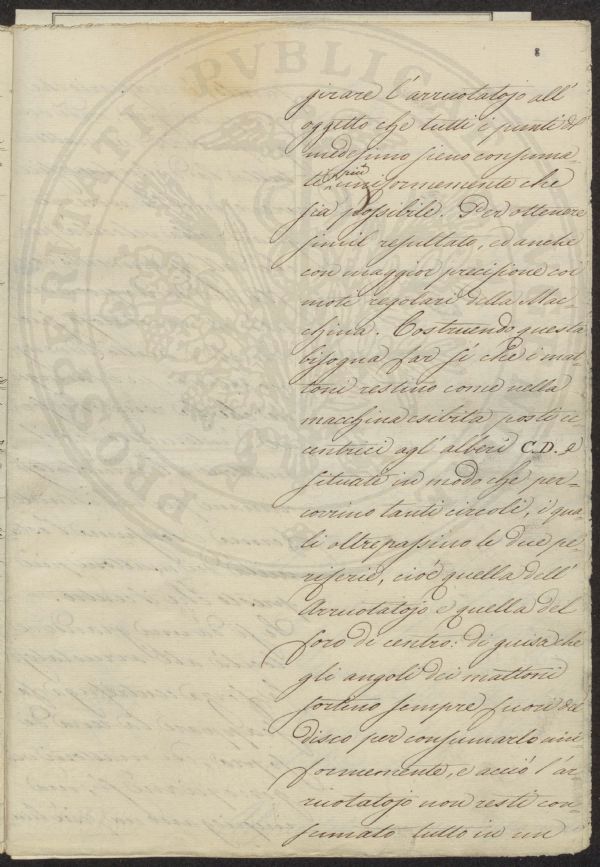 8
girare l'arruotatojo all'
oggetto che tutti i punti del
medesimo sieno consuma-
ti più uniformemente che
sia possibile. Per ottenere
simil resultato, ed anche
con maggior precisione coi
moti regolari della Mac-
china. Costruendo questa
bisogna far sì che i mat-
toni restino come nella
macchina esibita posti ec
centrici agl'alberi C.D. e
situati in modo che per-
corrino tanti circoli, i qua-
li oltrepassino le due pe-
riferie, cioè quella dell'
Arruotatojo e quella del
foro di centro: di guisa che
gli angoli dei mattoni
sortino sempre fuori del
disco per consumarlo uni
formemente, e acciò l'ar-
ruotatojo non resti con
sumato tutto in un